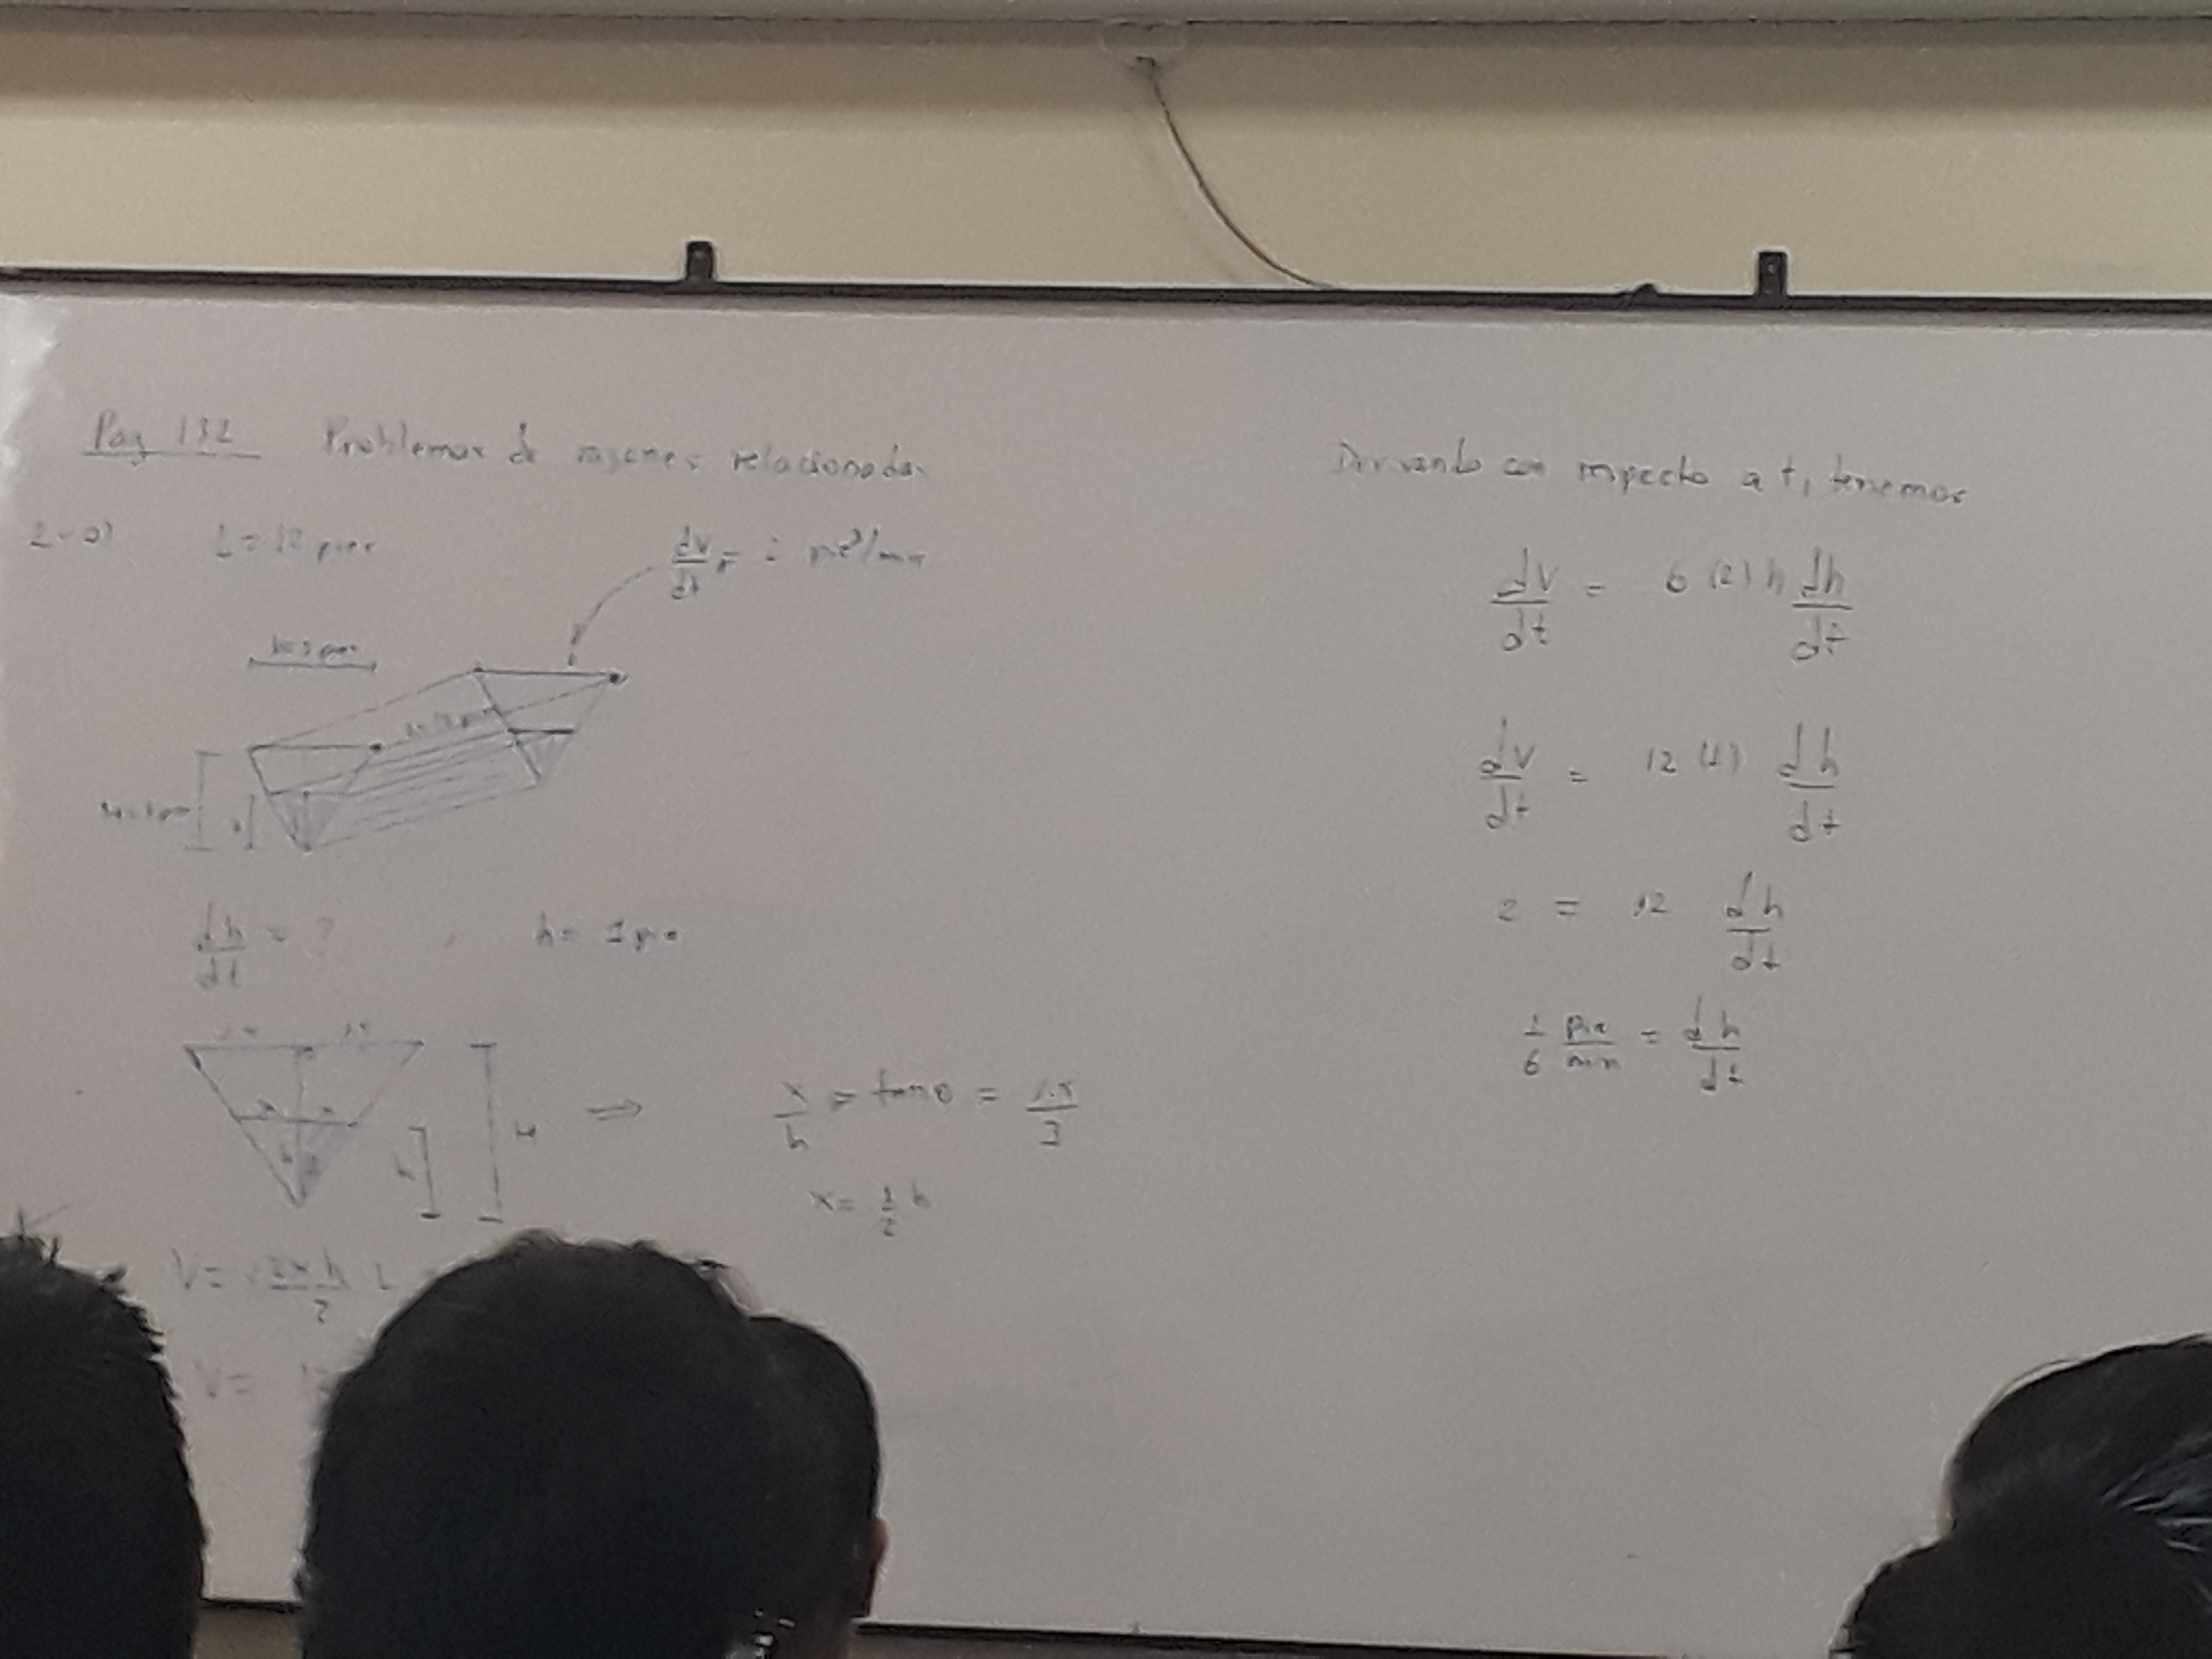 Pag 132 Problemas de razones relacionadas
2-a) L = 12 pies
dV/dt =
dh/dt = ? , h = 1 pie
H
h
x/h = tan θ = 1.5/3
x = 1/2 h
V = 2x h/2 L
V =
Derivando con respecto a t, tenemos
dV/dt = 6 (2) h dh/dt
dV/dt = 12 (1) dh/dt
2 = 12 dh/dt
1/6 pie/min = dh/dt